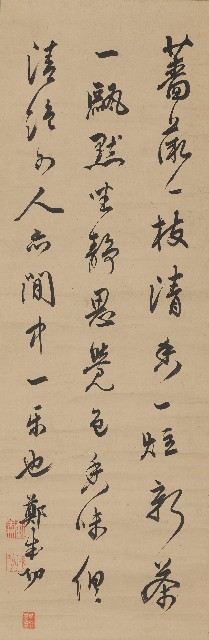 薔薇一枝清香一炷新茶
一甌默坐靜思覺色香味俱
清絶少人亦閒中一樂也 鄭成功